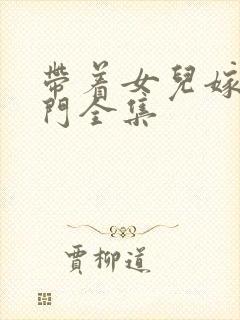 帶着女兒嫁
門全集
賈柳道